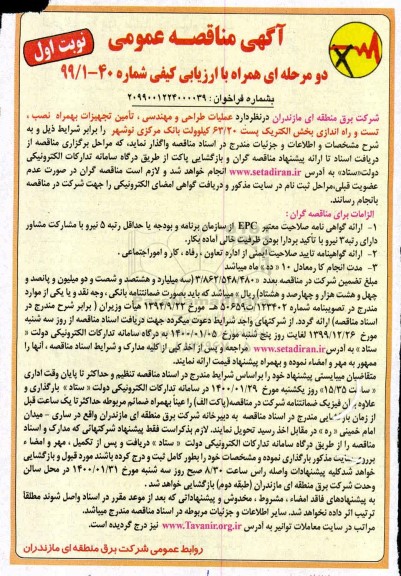 آگهی مناقصه عمومی
نوبت اول
دو مرحله ای همراه با ارزیابی کیفی شماره ۴۰-۹۹/۱
بشماره فراخوان : ۲۰۹۹۰۰۱۲۲۴۰۰۰۰۳۹
شرکت برق منطقه ای مازندران درنظردارد عملیات طراحی و مهندسی ، تأمین تجهیزات بهمراه نصب ،
تست و راه اندازی بخش الکتریک پست ۶۳/۲۰ کیلوولت بانک مرکزی نوشهر را برابر شرایط ذیل و به
شرح مشخصات و اطلاعات و جزئیات مندرج در اسناد مناقصه واگذار نماید، که مراحل برگزاری مناقصه از
دریافت اسناد تا ارائه پیشنهاد مناقصه گران و بازگشایی پاکت از طریق درگاه سامانه تدارکات الکترونیکی
دولت«ستاد» به آدرس www.setadiran.ir انجام خواهد شد و لازم است مناقصه گران در صورت عدم
عضویت قبلی،مراحل ثبت نام در سایت مذکور و دریافت گواهی امضای الکترونیکی را جهت شرکت در مناقصه
بانجام رسانند.
الزامات برای مناقصه گران :
۱- ارائه گواهی نامه صلاحیت معتبر EPC از سازمان برنامه و بودجه یا حداقل رتبه ۵ نیرو با مشارکت مشاور
دارای رتبه۳ نیرو با تأکید بردارا بودن ظرفیت خالی آماده بکار.
۲- ارائه گواهینامه تایید صلاحیت ایمنی از اداره تعاون ، رفاه ، کار و امور اجتماعی .
۳- مدت انجام کار معادل ۱۰ « ده » ماه میباشد
مبلغ تضمین شرکت در مناقصه بعدد ۳/۸۶۲/۵۴۸/۴۸۰ (سه میلیارد و هشتصد و شصت و دو میلیون و پانصد و
چهل و هشت هزار و چهارصد و هشتاد) ریال » میباشد که باید بصورت ضمانتنامه بانکی ، وجه نقد و یا یکی از موارد
مندرج در تصویبنامه شماره ۱۲۳۴۰۲/ت۵۰۶۵۹ هـ مورخ ۱۳۹۴/۹/۲۲ هیأت وزیران ( برابر شرح مندرج در
اسناد مناقصه) ارائه گردد. از شرکتهای واجد شرایط دعوت میگردد جهت دریافت اسناد مناقصه از روز سه شنبه
مورخ ۱۳۹۹/۱۲/۲۶ لغایت روز پنج شنبه مورخ ۱۴۰۰/۰۱/۰۵ به درگاه سامانه تدارکات الکترونیکی دولت «
ستاد » به آدرس www.setadiran.ir مراجعه و پس از اخذ کپی از کلیه مدارک و شرایط اسناد مناقصه ، آنها را
ممهور به مهر و امضاء نموده و بهمراه پیشنهاد قیمت ارائه نمایند.
متقاضیان میبایستی پیشنهاد خود را براساس شرایط مندرج در اسناد مناقصه تنظیم و حداکثر تا پایان وقت اداری
« ساعت ۱۵/۳۵» روز یکشنبه مورخ ۱۴۰۰/۰۱/۲۹ در سامانه تدارکات الکترونیکی دولت « ستاد » بارگذاری و
علاوه برآن فیزیک ضمانتنامه شرکت در مناقصه(پاکت الف) را عیناً بهمراه ضمائم مربوطه حداکثرتا یک ساعت قبل
از زمان بازگشایی مندرج در اسناد مناقصه به دبیرخانه شرکت برق منطقه ای مازندران واقع در ساری - میدان
امام خمینی «ره » در مقابل اخذ رسید تحویل نمایند. لازم بذکراست فقط پیشنهاد شرکتهائی که مدارک و اسناد
مناقصه را از طریق درگاه سامانه تدارکات الکترونیکی دولت « ستاد » دریافت و پس از تکمیل ، مهر و امضاء
برروی سایت مذکور بارگذاری نموده و مشخصات خود را بطور کامل ثبت و درج کرده باشند مورد قبول و بازگشایی
خواهد شد کلیه پیشنهادات واصله راس ساعت ۸/۳۰ صبح روز سه شنبه مورخ ۱۴۰۰/۰۱/۳۱ در محل سالن
وحدت شرکت برق منطقه ای مازندران (طبقه دوم) بازگشایی خواهد شد .
به پیشنهادهای فاقد امضاء ، مشروط ، مخدوش و پیشنهاداتی که بعد از موعد مقرر در اسناد واصل شوند مطلقاً
ترتیب اثر داده نخواهد شد. سایر اطلاعات و جزئیات مربوطه در اسناد مناقصه مندرج میباشد.
مراتب در سایت معاملات توانیر به آدرس www.Tavanir.org.ir نیز درج گردیده است.
روابط عمومی شرکت برق منطقه ای مازندران